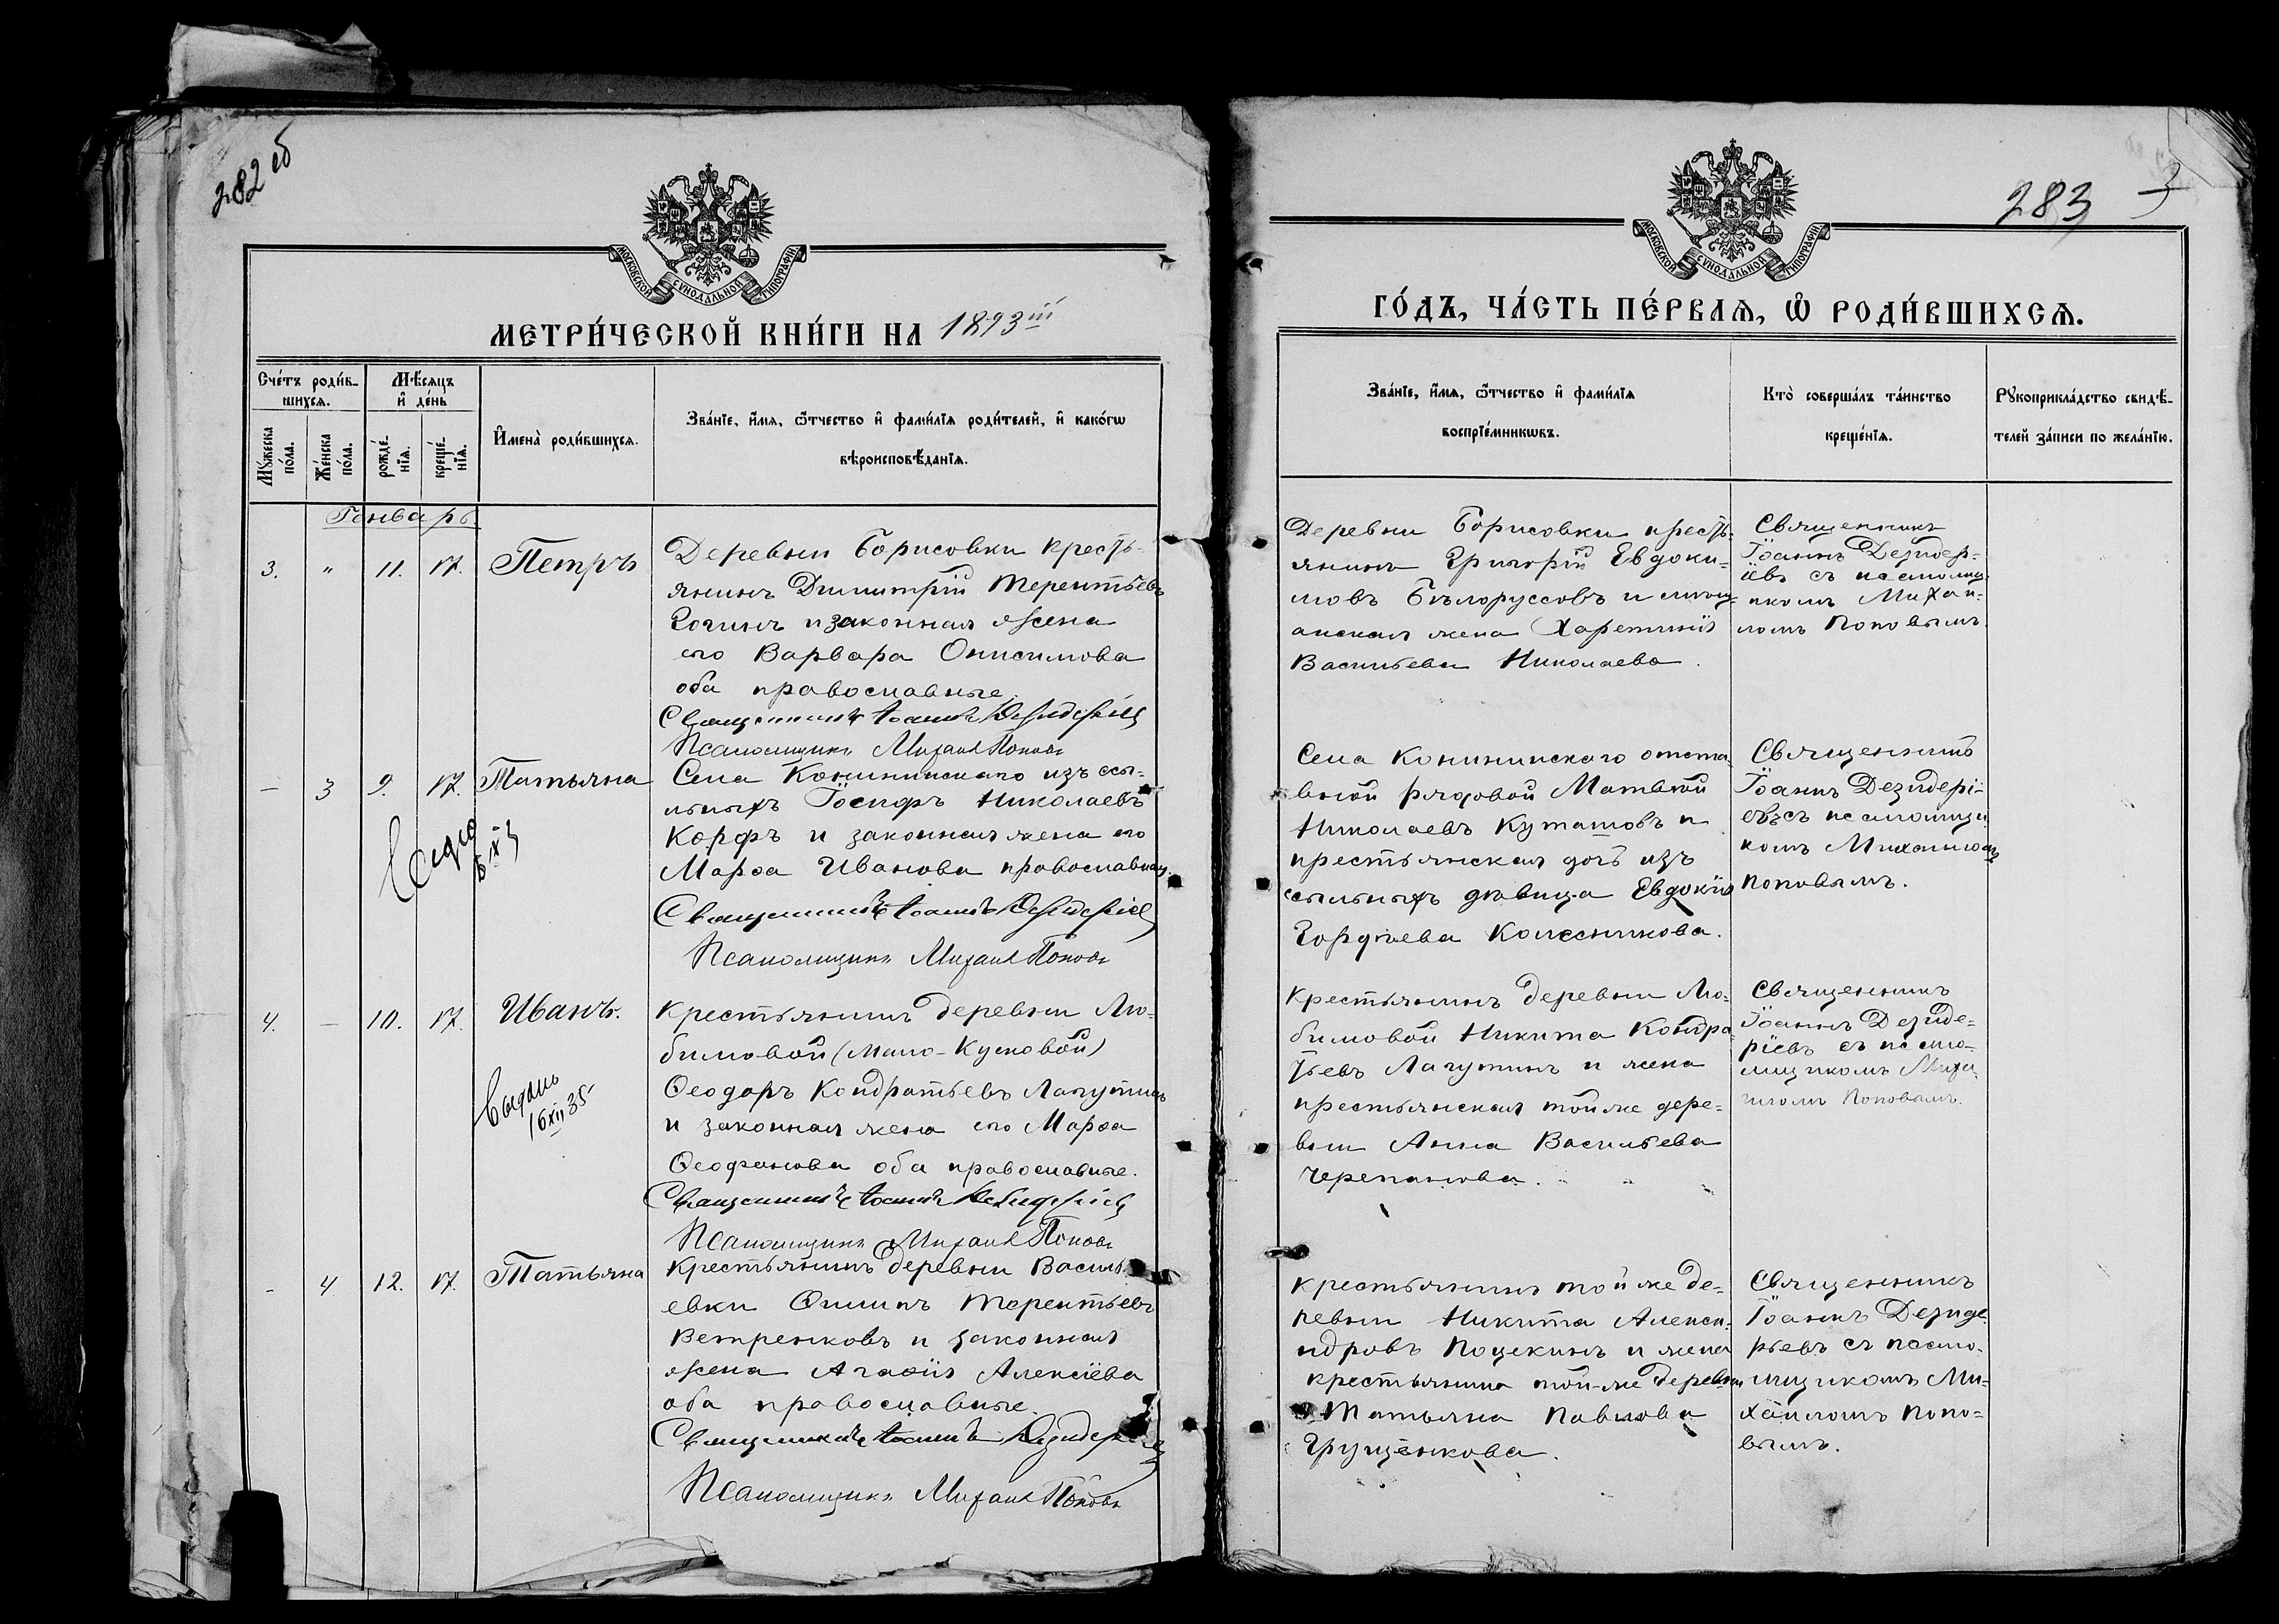 282 об
МОСКОВСКОЙ СѴНОДАЛЬНОЙ ТИПОГРАФІИ
МЕТРИ́ЧЕСКОЙ КНИ́ГИ НА 1893 ій
Сче́тъ роди́в-
шихсѧ.
Мꙋ́жеска по́ла.
Же́нска по́ла.
Мѣ́сѧцъ
и҆ де́нь
рожде́-
нїѧ.
креще́-
нїѧ.
И҆мена̀ роди́вшихсѧ.
Зва́нїе, и҆́мѧ, ѻ҆́тчество и҆ фами́лїѧ роди́телей, и҆ како́гѡ
вѣроисповѣ́данїѧ.
Генварь
3. „ 11. 17. Петръ
Деревни Борисовки кресть-
янинъ Димитрій Терентьевъ
и законная жена
его Варвара Онисимова
оба православные.
Священникъ Іоаннъ Дезидеріевъ
Псаломщикъ Михаилъ Поповъ
— 3 9. 17. Татьяна
Села Кониинскаго изъ ссы-
льныхъ Іосифъ Николаевъ
Корфъ и законная жена его
Марѳа Иванова православные.
Священникъ Іоаннъ Дезидеріевъ
Псаломщикъ Михаилъ Поповъ
4. — 10. 17. Иванъ.
Выдано
16 XII 35
Крестьянинъ деревни Лю-
бимовой (Мало-Кусковой)
Ѳеодоръ Кондратьевъ Лагутинъ
и законная жена его Марѳа
Ѳеофанова оба православные.
Священникъ Іоаннъ Дезидеріевъ
Псаломщикъ Михаилъ Поповъ
- 4 12. 17. Татьяна
Крестьянинъ деревни Василь-
евки Филипъ Терентьевъ
Ветренковъ и законная
жена Агаѳія Алексіева
оба православные.
Священникъ Іоаннъ Дезидеріевъ
Псаломщикъ Михаилъ Поповъ
283 3
МОСКОВСКОЙ СѴНОДАЛЬНОЙ ТИПОГРАФІИ
ГО́ДЪ, ЧА́СТЬ ПЕ́РВАѦ, Ѡ҆ РОДИ́ВШИХСѦ.
Зва́нїе, и҆́мѧ, ѻ҆́тчество и҆ фами́лїѧ
воспрїе́мникѡвъ.
Кто̀ соверша́лъ та́инство
креще́нїѧ.
Рꙋкоприкла́дство свидѣ́-
телей за́писи по жела́нїю.
Деревни Борисовки кресть-
янинъ Григорій Евдоки-
мовъ Бѣлоруссовъ и мѣщ-
анская жена Харетинія
Васильева Николаева.
Священникъ
Іоаннъ Дезидер-
іевъ съ псаломщ-
икомъ Михаи-
ломъ Поповымъ.
Села Кониинскаго отста-
вной рядовой Матвѣй
Николаевъ Куташовъ и
крестьянская дочь изъ
ссыльныхъ дѣвица Евдокія
Гордѣева Колесникова.
Священникъ
Іоаннъ Дезидері-
евъ съ псаломщи-
комъ Михаиломъ
Поповымъ.
Крестьянинъ деревни Лю-
бимовой Никита Кондра-
тьевъ Лагутинъ и жена
крестьянская той же дере-
вни Анна Васильева
Черепанова.
Священникъ
Іоаннъ Дезиде-
ріевъ съ псало-
мщикомъ Миха-
иломъ Поповымъ.
Крестьянинъ той же де-
ревни Никита Алекса-
ндровъ Поцекинъ и жена
крестьянина той-же деревни
Татьяна Павлова
Грущенкова.
Священникъ
Іоаннъ Дезиде-
рьевъ съ псало-
мщикомъ Ми-
хаиломъ Попо-
вымъ.